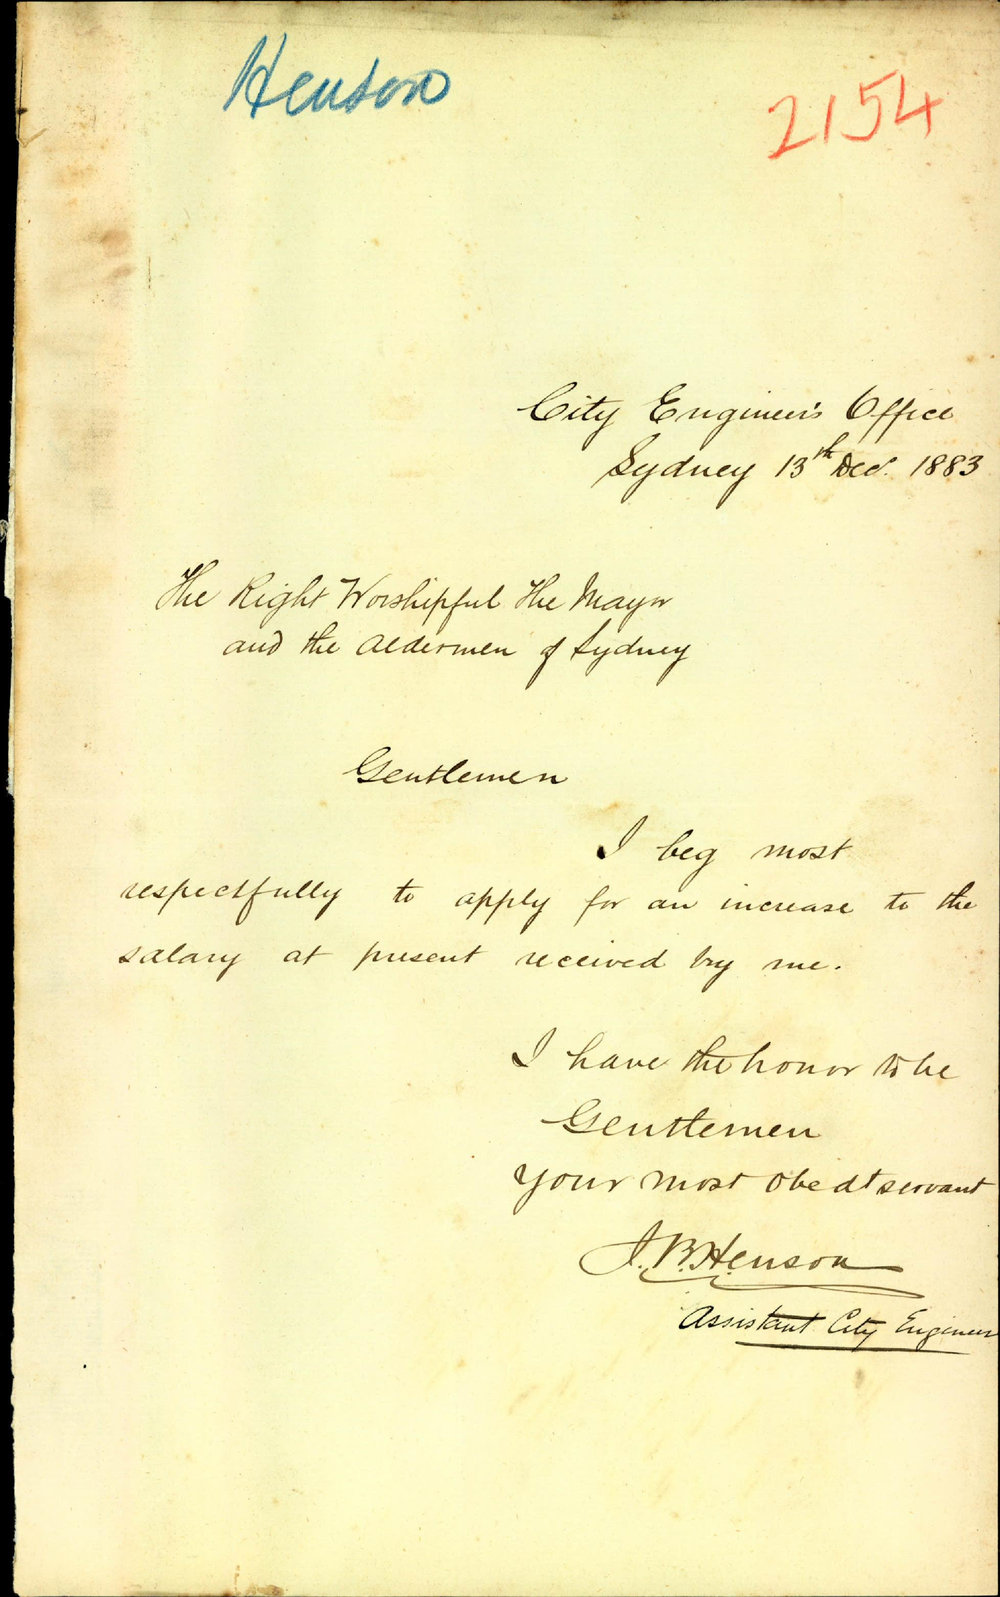 Henson
2154
City Engineer's Office
Sydney 13th Decr. 1883
The Right Worshipful The Mayor
and the Aldermen of Sydney
Gentlemen
I beg most
respectfully to apply for an increase to the
salary at present received by me.
I have the honor to be
Gentlemen
Your most obedt servant
J. B. Henson
Assistant City Engineer